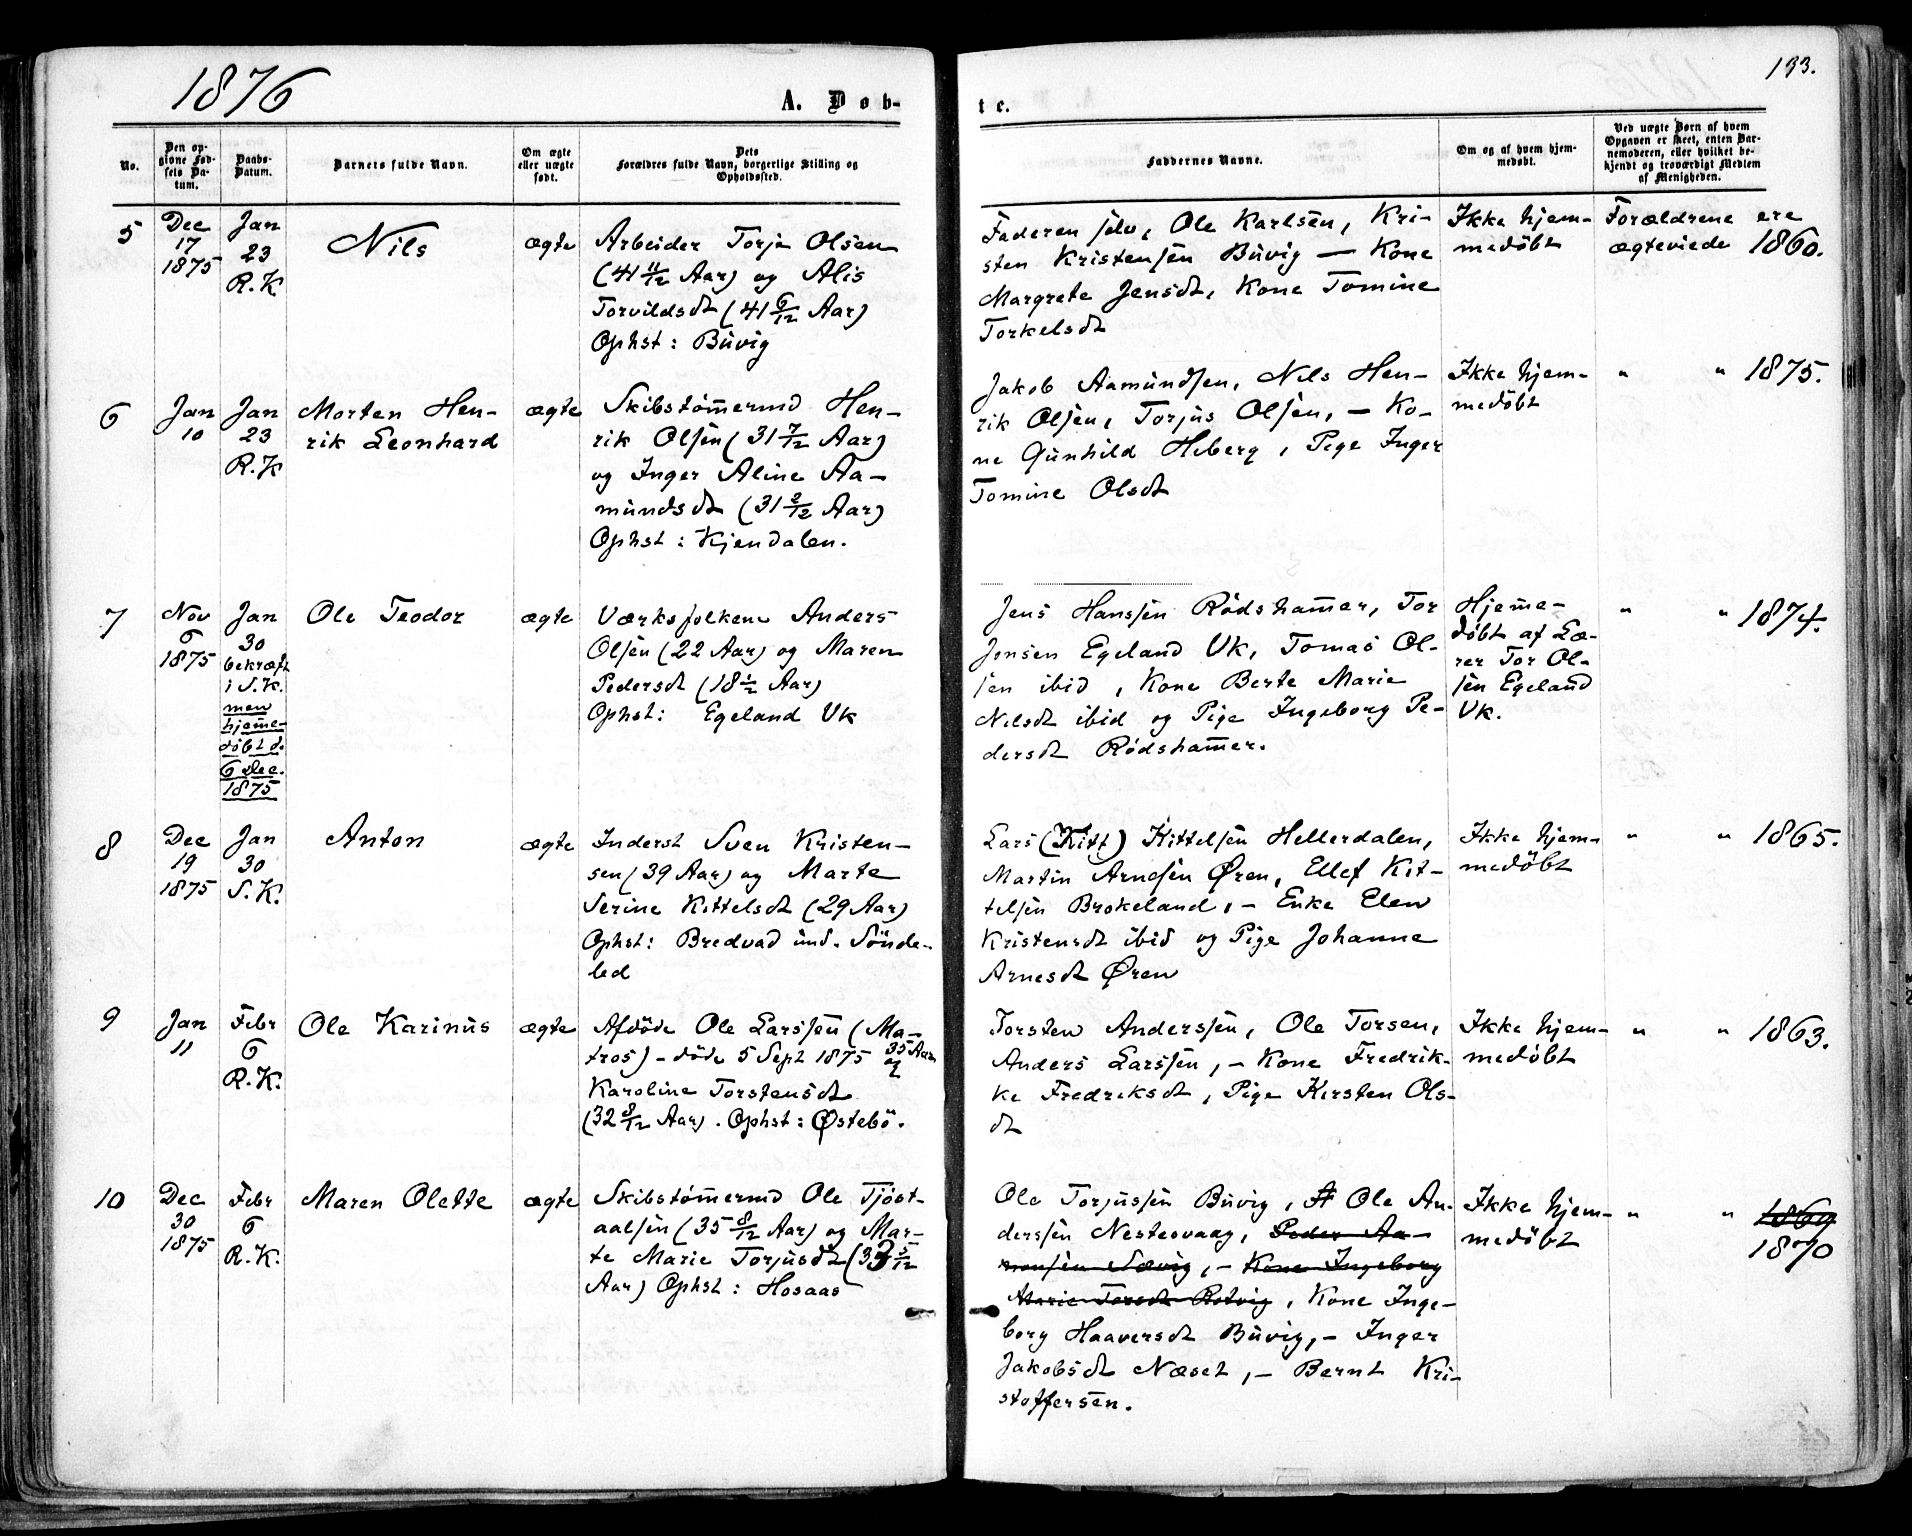 1876
A. Døb-
te.
133.
No.
Den op-
givne Fød-
sels Da-
tum.
Daabs-
Datum.
Barnets fulde Navn.
Om ægte
eller uægte
født.
Dets
Forældres fulde Navn, borgerlige Stilling og
Opholdssted.
Faddernes Navne.
Om og af hvem hjem-
medøbt.
Ved uægte Børn af hvem
Opgaven er skeet, enten Bar-
nemoderen, eller hvilket be-
kjendt og troværdigt Medlem
af Menigheden.
5
Dec
17
1875
Jan
23
R.K
Nils
ægte
Arbeider Torje Olsen
(41 11/12 Aar) og Alis
Torvildsdt (41 6/12 Aar)
Ophst: Buvig
Faderen selv, Ole Karlsen, Kri-
sten Kristensen Buvig — Kone
Margrete Jensdt, Kone Tomine
Torkelsdt
Ikke hjem-
medøbt
Forældrene ere
ægteviede 1860.
6
Jan
10
Jan
23
R.K
Morten Hen-
rik Leonhard
ægte
Skibstømermd Hen-
rik Olsen (31 7/12 Aar)
og Inger Aline Aa-
mundsdt (31 2/12 Aar)
Ophst: Kjendalen.
Jakob Aamundsen, Nils Hen-
rik Olsen, Torjus Olsen, — Ko-
ne Gunhild Heberg, Pige Inger
Tomine Olsdt
Ikke hjem-
medøbt
" " 1875.
7
Nov
6
1875
Jan
30
bekræft
i S.K.
men
hjeme-
døbt d.
6 Dec.
1875
Ole Teodor
ægte
Værksfolkene Anders
Olsen (22 Aar) og Maren
Pedersdt (18 1/2 Aar)
Ophst: Egeland Vk
Jens Hanssen Rødshamer, Tor
Jensen Egeland Vk, Tomas Ol-
sen ibid, Kone Berte Marie
Nilsdt ibid og Pige Ingeborg Pe-
dersdt Rødshamer.
Hjeme-
døbt af Læ-
rer Tor Ol-
sen Egeland
Vk.
" " 1874.
8
Dec
19
1875
Jan
30
S.K.
Anton
ægte
Inderst Sven Kristen-
sen (39 Aar) og Marte
Serine Kittelsdt (29 Aar)
Ophst: Bredvad ind. Sønde-
led
Lars (Kitt) Kittelsen Hellerdalen,
Martin Arndsen Øren, Ellef Kit-
telsen Brokeland, — Enke Elen
Kristensdt ibid og Pige Johanne
Arnesdt Øren
Ikke hjem-
medøbt
" " 1865.
9
Jan
11
Febr
6
R.K.
Ole Karinus
ægte
Afdøde Ole Larssen (Ma-
tros) — døde 5 Sept 1875 35 Aar og
Karoline Torstensdt
(32 8/12 Aar). Ophst: Østebø.
Torsten Anderssen, Ole Torsen,
Anders Larssen, — Kone Fredrik-
ke Fredriksdt, Pige Kirsten Ols-
dt
Ikke hjem-
medøbt
" " 1863.
10
Dec
30
1875
Febr
6
R.K.
Maren Olette
ægte
Skibstømermd Ole Tjøst-
aalsen (35 8/12 Aar) og Mar-
te Marie Torjusdt (33 5/12
Aar) Ophst: Hosaas
Ole Torjussen Buvig, A Ole An-
derssen Nestesvaag, Peder Aa-
monsen Sævig, — Kone Ingeborg
Marie Torsdt Rotvig, Kone Inge-
borg Haaversdt Buvig, — Inger
Jakobsdt Næset, — Bernt Kri-
stoffersen.
Ikke hjem-
medøbt
" " 1869
1870